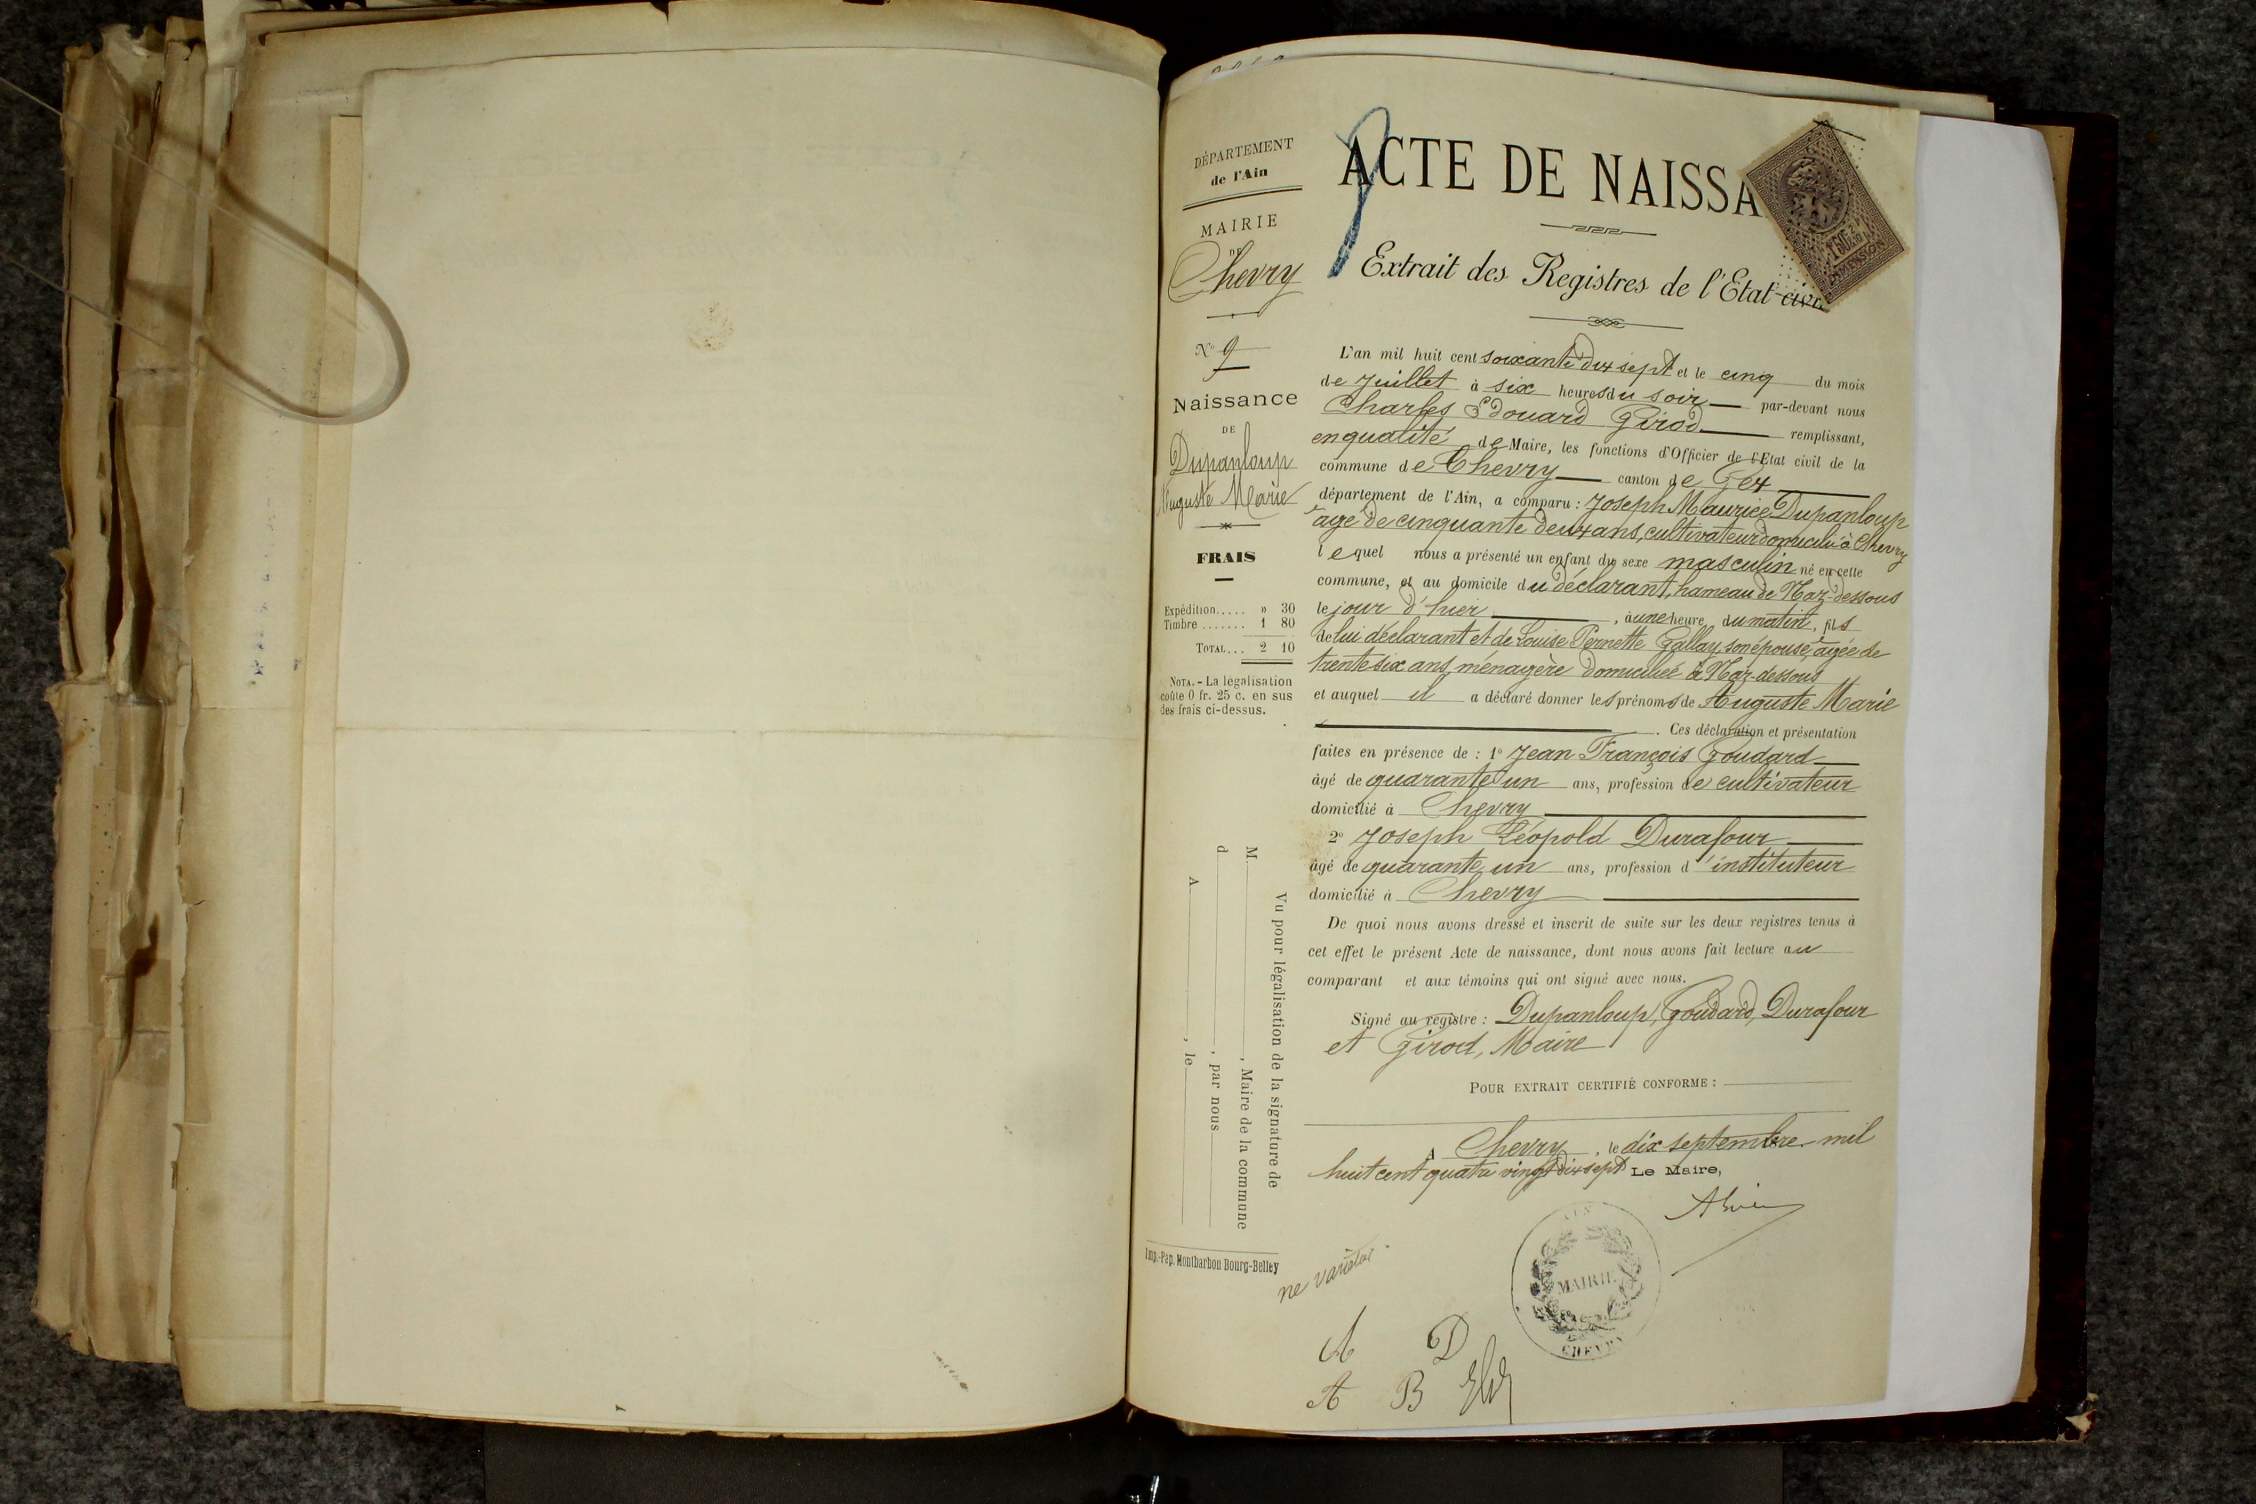 DÉPARTEMENT
de l'Ain
MAIRIE
DE
Chevry
N° 9
Naissance
DE
Dupanloup
Auguste Marie
FRAIS
Expédition..... » 30
Timbre ....... 1 80
TOTAL... 2 10
NOTA. - La légalisation
coûte 0 fr. 25 c. en sus
des frais ci-dessus.
Vu pour légalisation de la signature de
M. , Maire de la commune
d , par nous
A , le
Imp.-Pap. Montbarbon Bourg-Belley
ACTE DE NAISSA
Extrait des Registres de l'Etat civil
DIMENSION
L'an mil huit cent soixante dix sept et le cinq du mois
de Juillet à six heures du soir par-devant nous
Charles Edouard Girod remplissant,
en qualité de Maire, les fonctions d'Officier de l'Etat civil de la
commune de Chevry canton de Gex
département de l'Ain, a comparu : Joseph Maurice Dupanloup
âgé de cinquante deux ans, cultivateur domicilié à Chevry
lequel nous a présenté un enfant du sexe masculin né en cette
commune, et au domicile du déclarant, hameau de Naz-dessous
le jour d'hier , à une heure du matin, fils
de lui déclarant et de Louise Pernette Gallay son épouse, âgée de
trente six ans, ménagère domiciliée à Naz-dessous
et auquel il a déclaré donner les prénoms de Auguste Marie
. Ces déclaration et présentation
faites en présence de : 1° Jean François Goudard
âgé de quarante un ans, profession de cultivateur
domicilié à Chevry
2° Joseph Léopold Durafour
âgé de quarante un ans, profession d'instituteur
domicilié à Chevry
De quoi nous avons dressé et inscrit de suite sur les deux registres tenus à
cet effet le présent Acte de naissance, dont nous avons fait lecture au
comparant et aux témoins qui ont signé avec nous.
Signé au registre : Dupanloup, Goudard, Durafour
et Girod, Maire
POUR EXTRAIT CERTIFIÉ CONFORME :
A Chevry , le dix septembre mil
huit cent quatre vingt dix sept Le Maire,
AIN
MAIRIE
CHEVRY
ne varietur
A D
A B